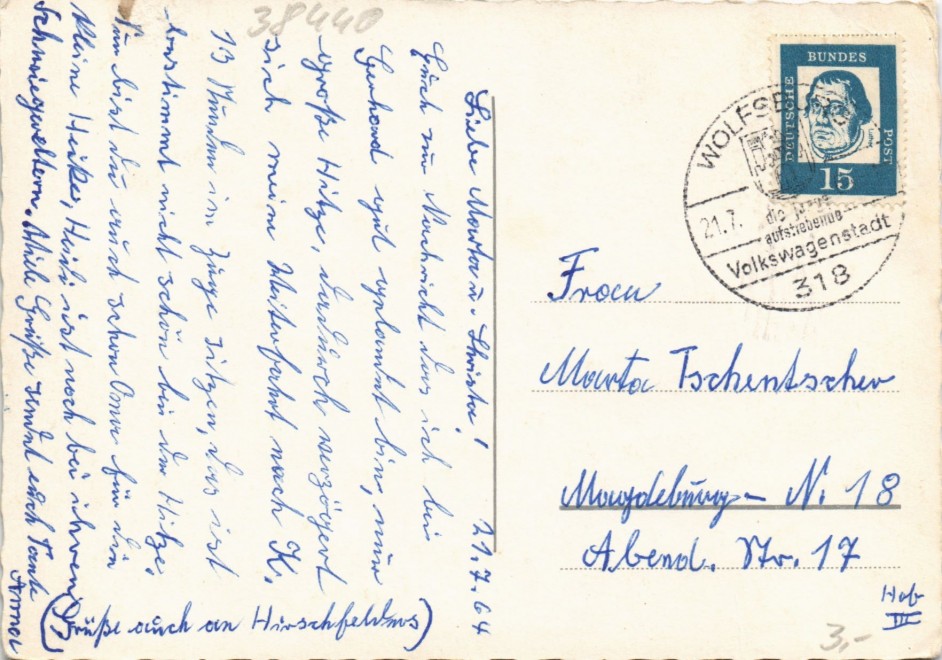 38440
Liebe Marta u. Christa! 21.7.64
Euch zur Nachricht das ich bei
Gerhard gut gelandet bin, nur
große Hitze, dadurch verzögert
sich meine Weiterfahrt nach K.
13 Stunden im Zuge sitzen, das ist
bestimmt nicht schön bei der Hitze.
Nun bist du auch schon Oma für die
kleine Heike, Heidi ist noch bei ihren
Schwiegereltern. Viele Grüße sendet euch Tante
Anna
(Grüße auch an Hirschfelders)
DEUTSCHE
BUNDES
POST
15
WOLFSBURG
21.7.
die
aufstrebende
Volkswagenstadt
318
Frau
Marta Tschentscher
Magdeburg - N. 18
Abend. Str. 17
Hab
III
3,-